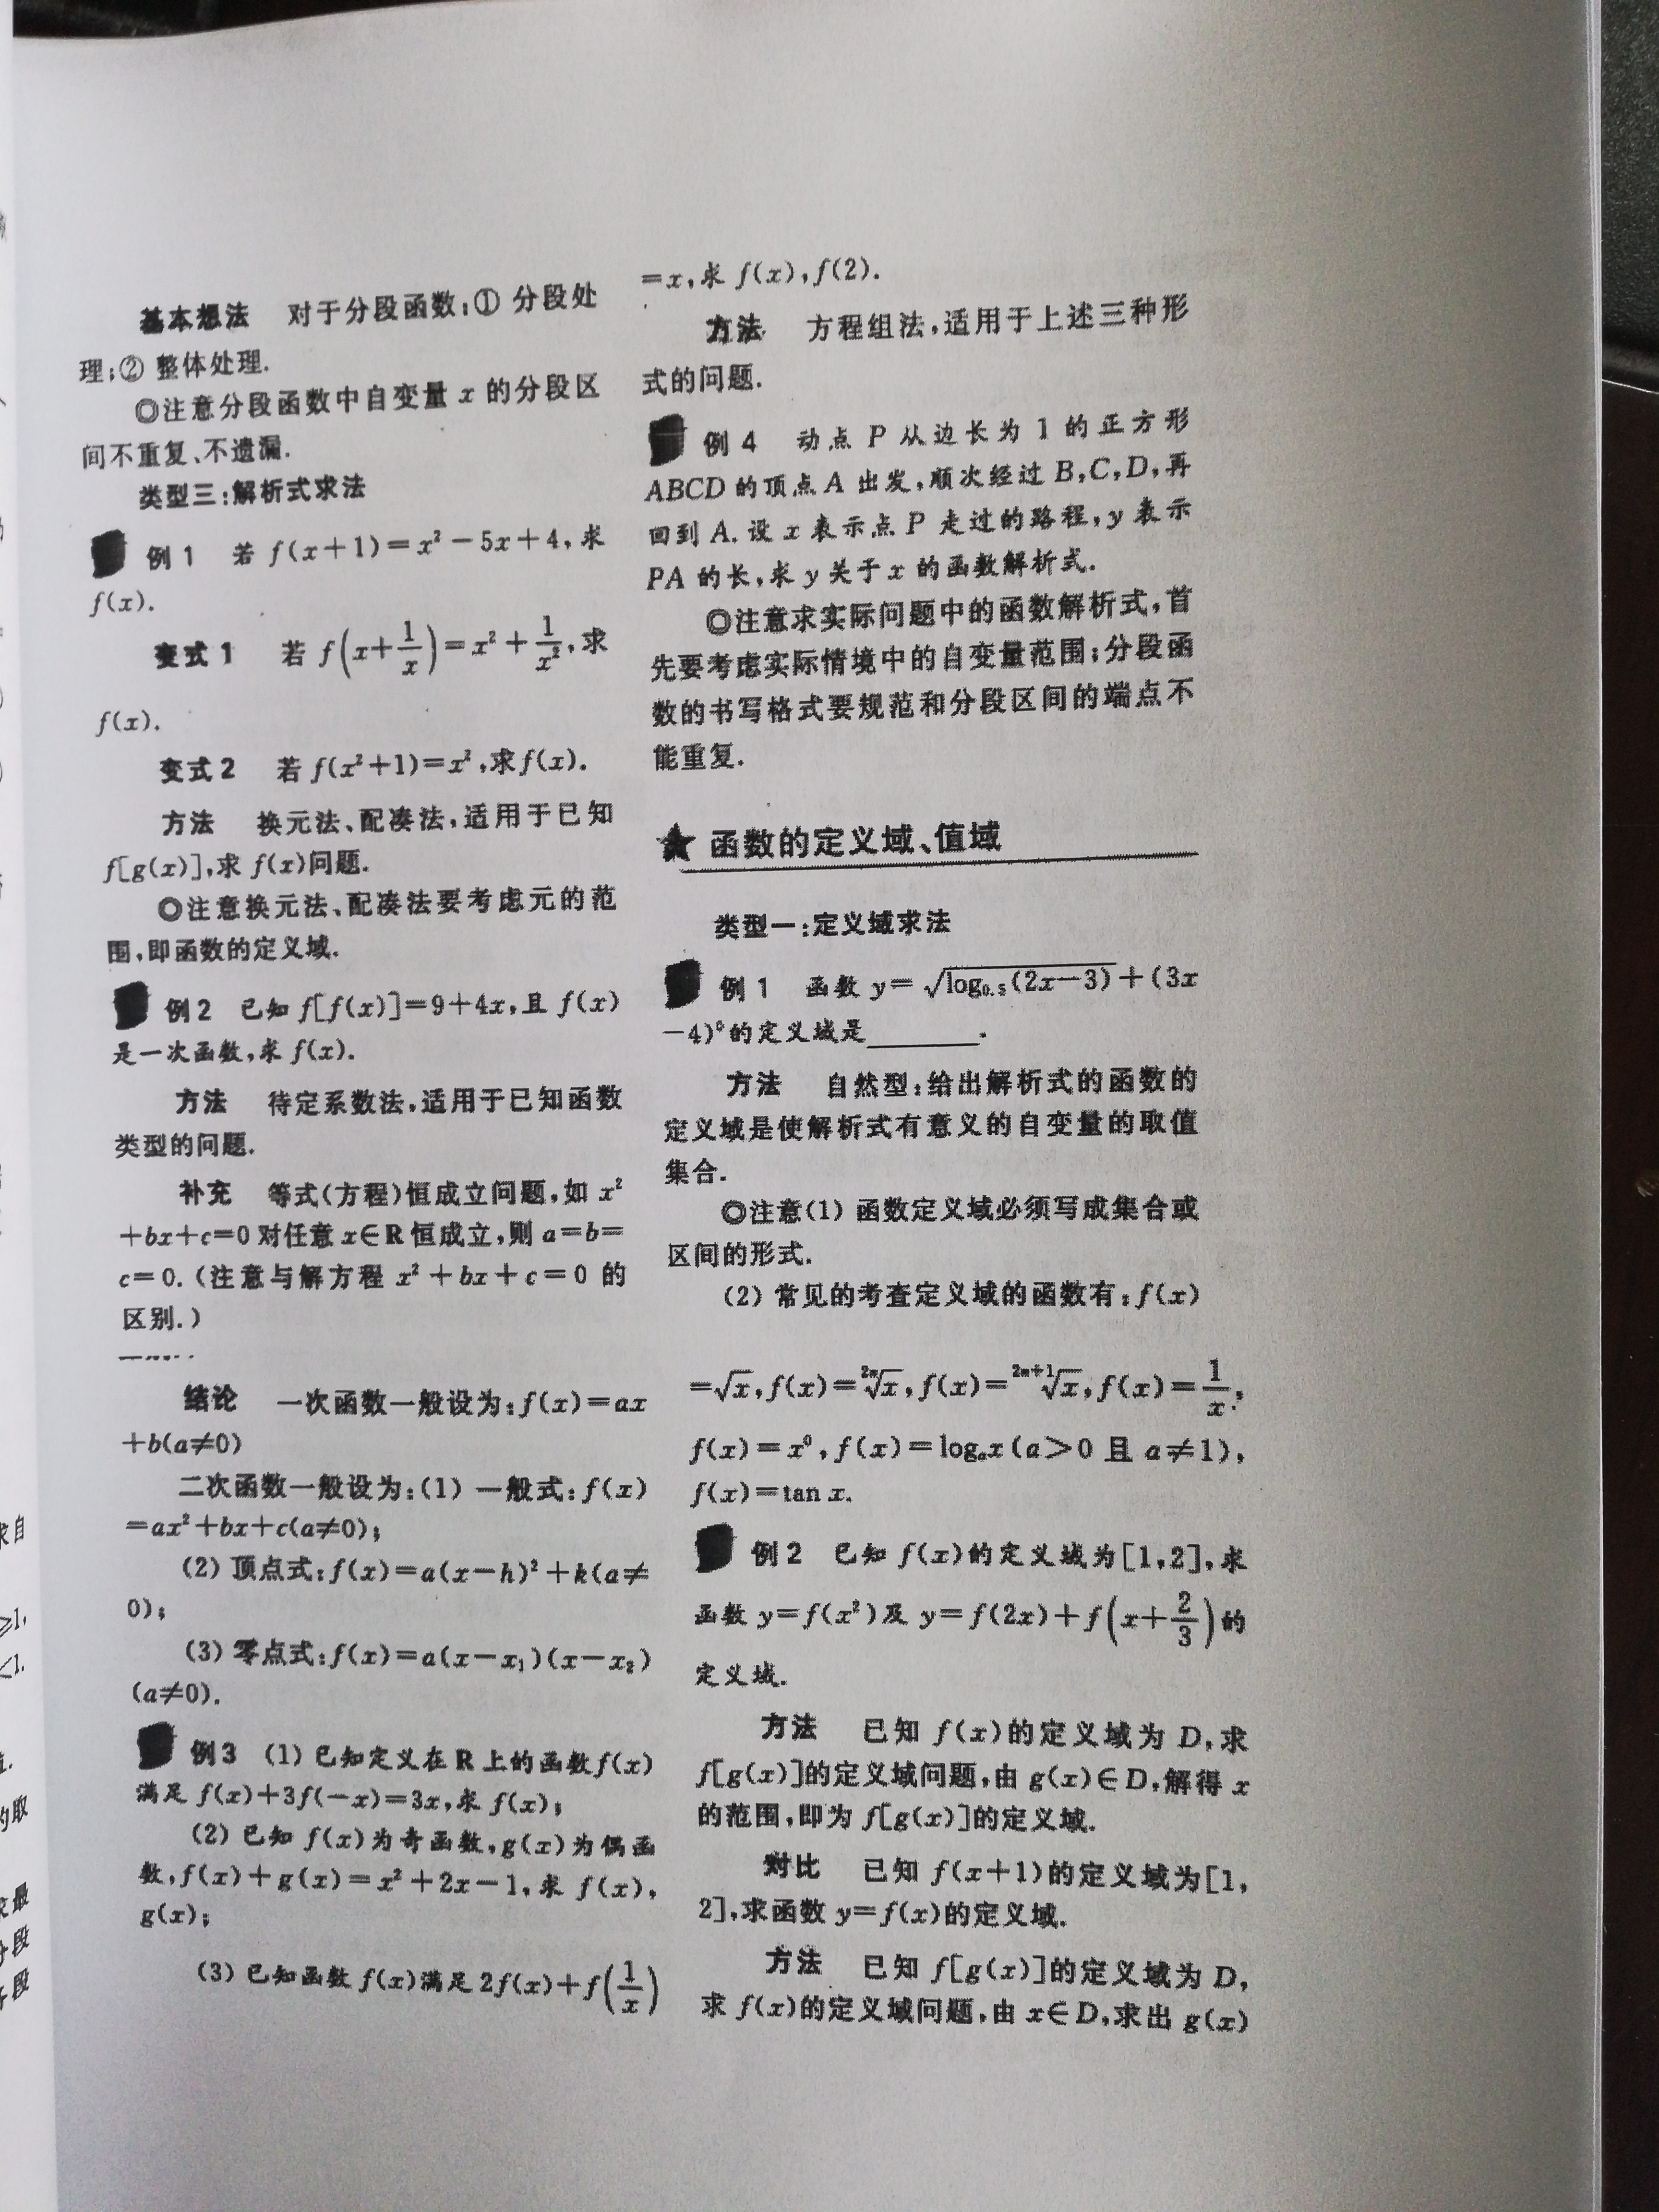 基本想法 对于分段函数:① 分段处
理;② 整体处理.
◎注意分段函数中自变量 x 的分段区
间不重复、不遗漏.
类型三:解析式求法
例 1 若 f(x+1)=x²-5x+4,求
f(x).
变式 1 若 f(x+1/x)=x²+1/x²,求
f(x).
变式 2 若 f(x²+1)=x²,求f(x).
方法 换元法、配凑法,适用于已知
f[g(x)],求 f(x)问题.
◎注意换元法、配凑法要考虑元的范
围,即函数的定义域.
例 2 已知 f[f(x)]=9+4x,且 f(x)
是一次函数,求 f(x).
方法 待定系数法,适用于已知函数
类型的问题.
补充 等式(方程)恒成立问题,如 x²
+bx+c=0对任意 x∈R 恒成立,则 a=b=
c=0.(注意与解方程 x²+bx+c=0 的
区别.)
结论 一次函数一般设为:f(x)=ax
+b(a≠0)
二次函数一般设为:(1) 一般式:f(x)
=ax²+bx+c(a≠0);
(2) 顶点式:f(x)=a(x-h)²+k(a≠
0);
(3) 零点式:f(x)=a(x-x₁)(x-x₂)
(a≠0).
例 3 (1) 已知定义在 R 上的函数f(x)
满足 f(x)+3f(-x)=3x,求 f(x);
(2) 已知 f(x)为奇函数,g(x)为偶函
数,f(x)+g(x)=x²+2x-1,求 f(x),
g(x);
(3) 已知函数 f(x)满足 2f(x)+f(1/x)
=x,求 f(x),f(2).
方法 方程组法,适用于上述三种形
式的问题.
例 4 动点 P 从边长为 1 的正方形
ABCD 的顶点 A 出发,顺次经过 B,C,D,再
回到 A.设 x 表示点 P 走过的路程,y 表示
PA 的长,求 y 关于 x 的函数解析式.
◎注意求实际问题中的函数解析式,首
先要考虑实际情境中的自变量范围;分段函
数的书写格式要规范和分段区间的端点不
能重复.
★ 函数的定义域、值域
类型一:定义域求法
例 1 函数 y=√(log₀.₅(2x-3))+(3x
-4)⁰的定义域是________.
方法 自然型:给出解析式的函数的
定义域是使解析式有意义的自变量的取值
集合.
◎注意(1) 函数定义域必须写成集合或
区间的形式.
(2) 常见的考查定义域的函数有:f(x)
=√x,f(x)=²ⁿ√x,f(x)=²ⁿ⁺¹√x,f(x)=1/x,
f(x)=x⁰,f(x)=logₐx(a>0 且 a≠1),
f(x)=tan x.
例 2 已知 f(x)的定义域为[1,2],求
函数 y=f(x²)及 y=f(2x)+f(x+2/3)的
定义域.
方法 已知 f(x)的定义域为 D,求
f[g(x)]的定义域问题,由 g(x)∈D,解得 x
的范围,即为 f[g(x)]的定义域.
对比 已知 f(x+1)的定义域为[1,
2],求函数 y=f(x)的定义域.
方法 已知 f[g(x)]的定义域为 D,
求 f(x)的定义域问题,由 x∈D,求出 g(x)